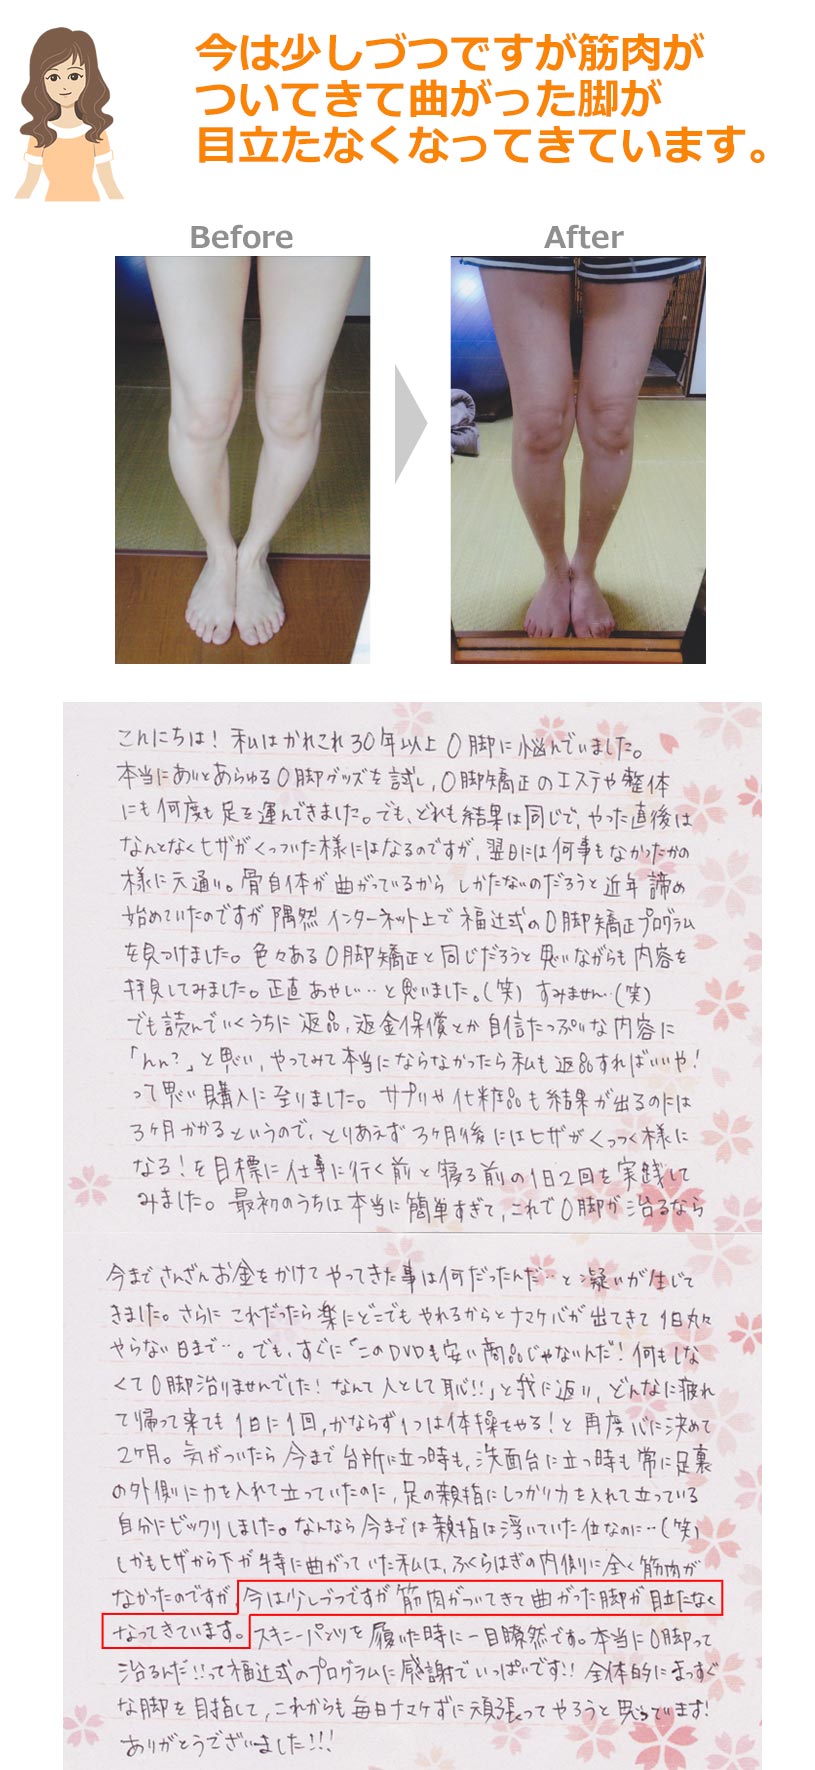 今は少しづつですが筋肉が
ついてきて曲がった脚が
目立たなくなってきています。
Before
After
こんにちは！私はかれこれ30年以上O脚に悩んでいました。
本当にありとあらゆるO脚グッズを試し、O脚矯正のエステや整体
にも何度も足を運んできました。でも、どれも結果は同じで、やった直後は
なんとなくヒザがくっついた様にはなるのですが、翌日には何事もなかったかの
様に元通り。骨自体が曲がっているからしかたないのだろうと近年諦め
始めていたのですが隅然インターネット上で福辻式のO脚矯正プログラム
を見つけました。色々あるO脚矯正と同じだろうと思いながらも内容を
拝見してみました。正直あやしい…と思いました。(笑)すみません…(笑)
でも読んでいくうちに返品、返金保償とか自信たっぷりな内容に
「ん？」と思い、やってみて本当にならなかったら私も返品すればいいや！
って思い購入に至りました。サプリや化粧品も結果が出るのには
3ヶ月かかるというので、とりあえず3ヶ月後にはヒザがくっつく様に
なる！を目標に仕事に行く前と寝る前の1日2回を実践して
みました。最初のうちは本当に簡単すぎて、これでO脚が治るなら
今までさんざんお金をかけてやってきた事は何だったんだ…と凝いが生じて
きました。さらにこれだったら楽にどこでもやれるからとナマケ心が出てきて1日丸々
やらない日まで…。でも、すぐに「このDVDも安い商品じゃないんだ！何もしな
くてO脚治りませんでした！なんて人として恥!!」と我に返り、どんなに疲れ
て帰って来ても1日に1回、かならず1つは体操をやる！と再度心に決めて
2ヶ月。気がついたら今まで台所に立つ時も、洗面台に立つ時も常に足裏
の外側に力を入れて立っていたのに、足の親指にしっかり力を入れて立っている
自分にビックリしました。なんなら今までは親指は浮いていた位なのに…(笑)
しかもヒザから下が特に曲がっていた私は、ふくらはぎの内側に全く筋肉が
なかったのですが、今は少しづつですが筋肉がついてきて曲がった脚が目立たなく
なってきています。スキニーパンツを履いた時に一目瞭然です。本当にO脚って
治るんだ!!って福辻式のプログラムに感謝でいっぱいです!!全体的にまっすぐ
な脚を目指して、これからも毎日ナマケずに頑張ってやろうと思っています！
ありがとうございました!!!